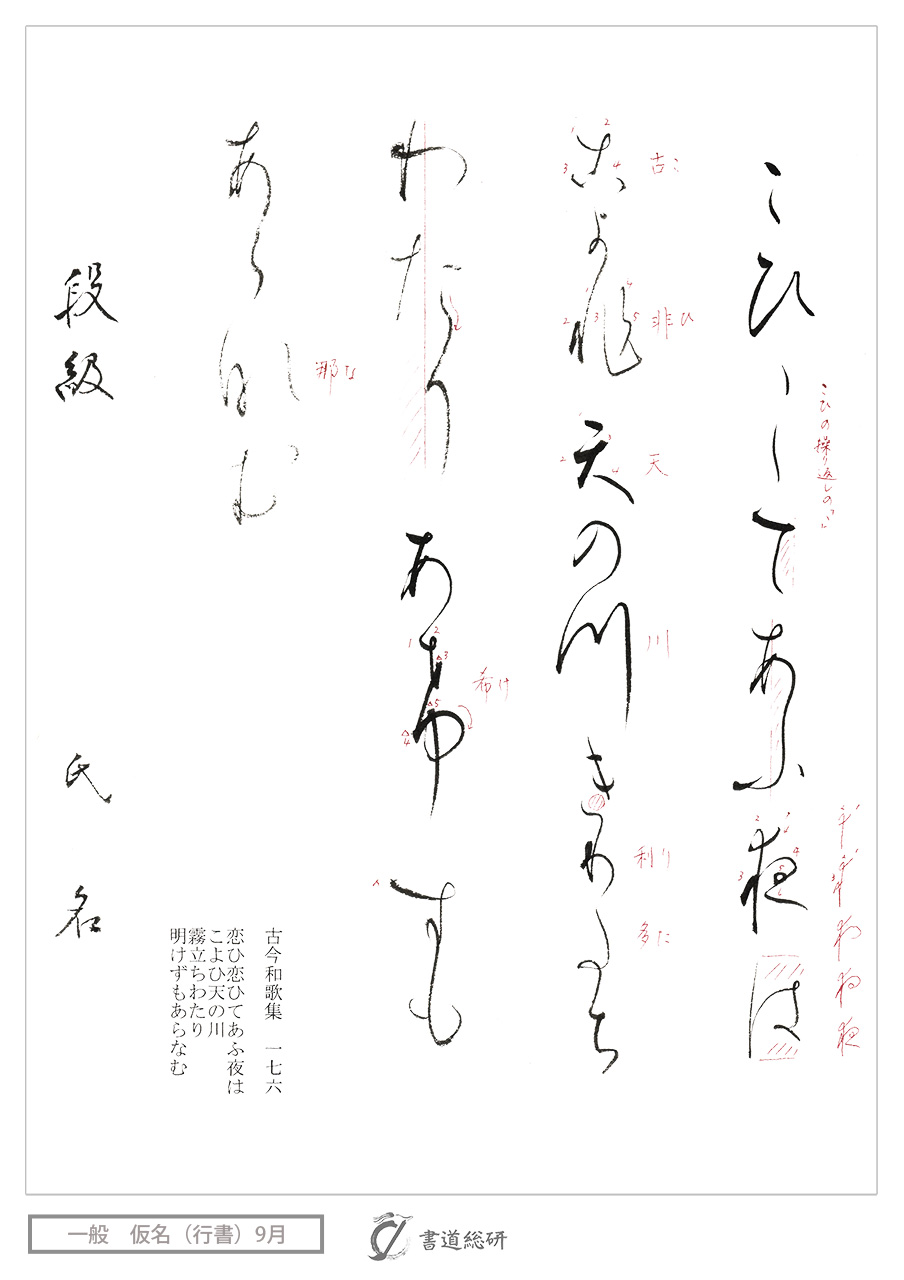 こひの繰り返しの
こひ〳〵てあふ夜は
古こ
非ひ
天
川
利り
多た
古よ非天の川き利多ち
希け
わたりあ希すも
那な
あら那む
段級 氏名
古今和歌集 一七六
恋ひ恋ひてあふ夜は
こよひ天の川
霧立ちわたり
明けずもあらなむ
一般 仮名（行書）9月
書道総研